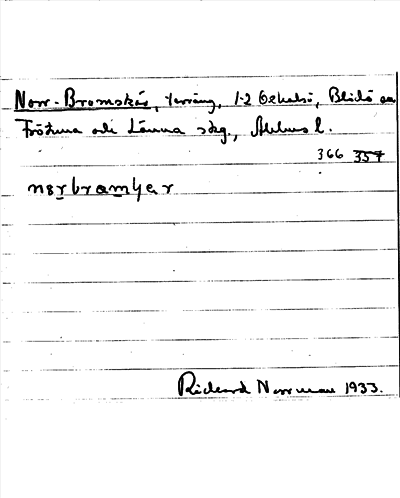 Norr-Bromskär, terräng, 1-2 Oxhalsö, Blidö sn
Frötuna och Länna skg., Sthlms l.
366 357
nørbramʃyær
Rickard Norrman 1933.